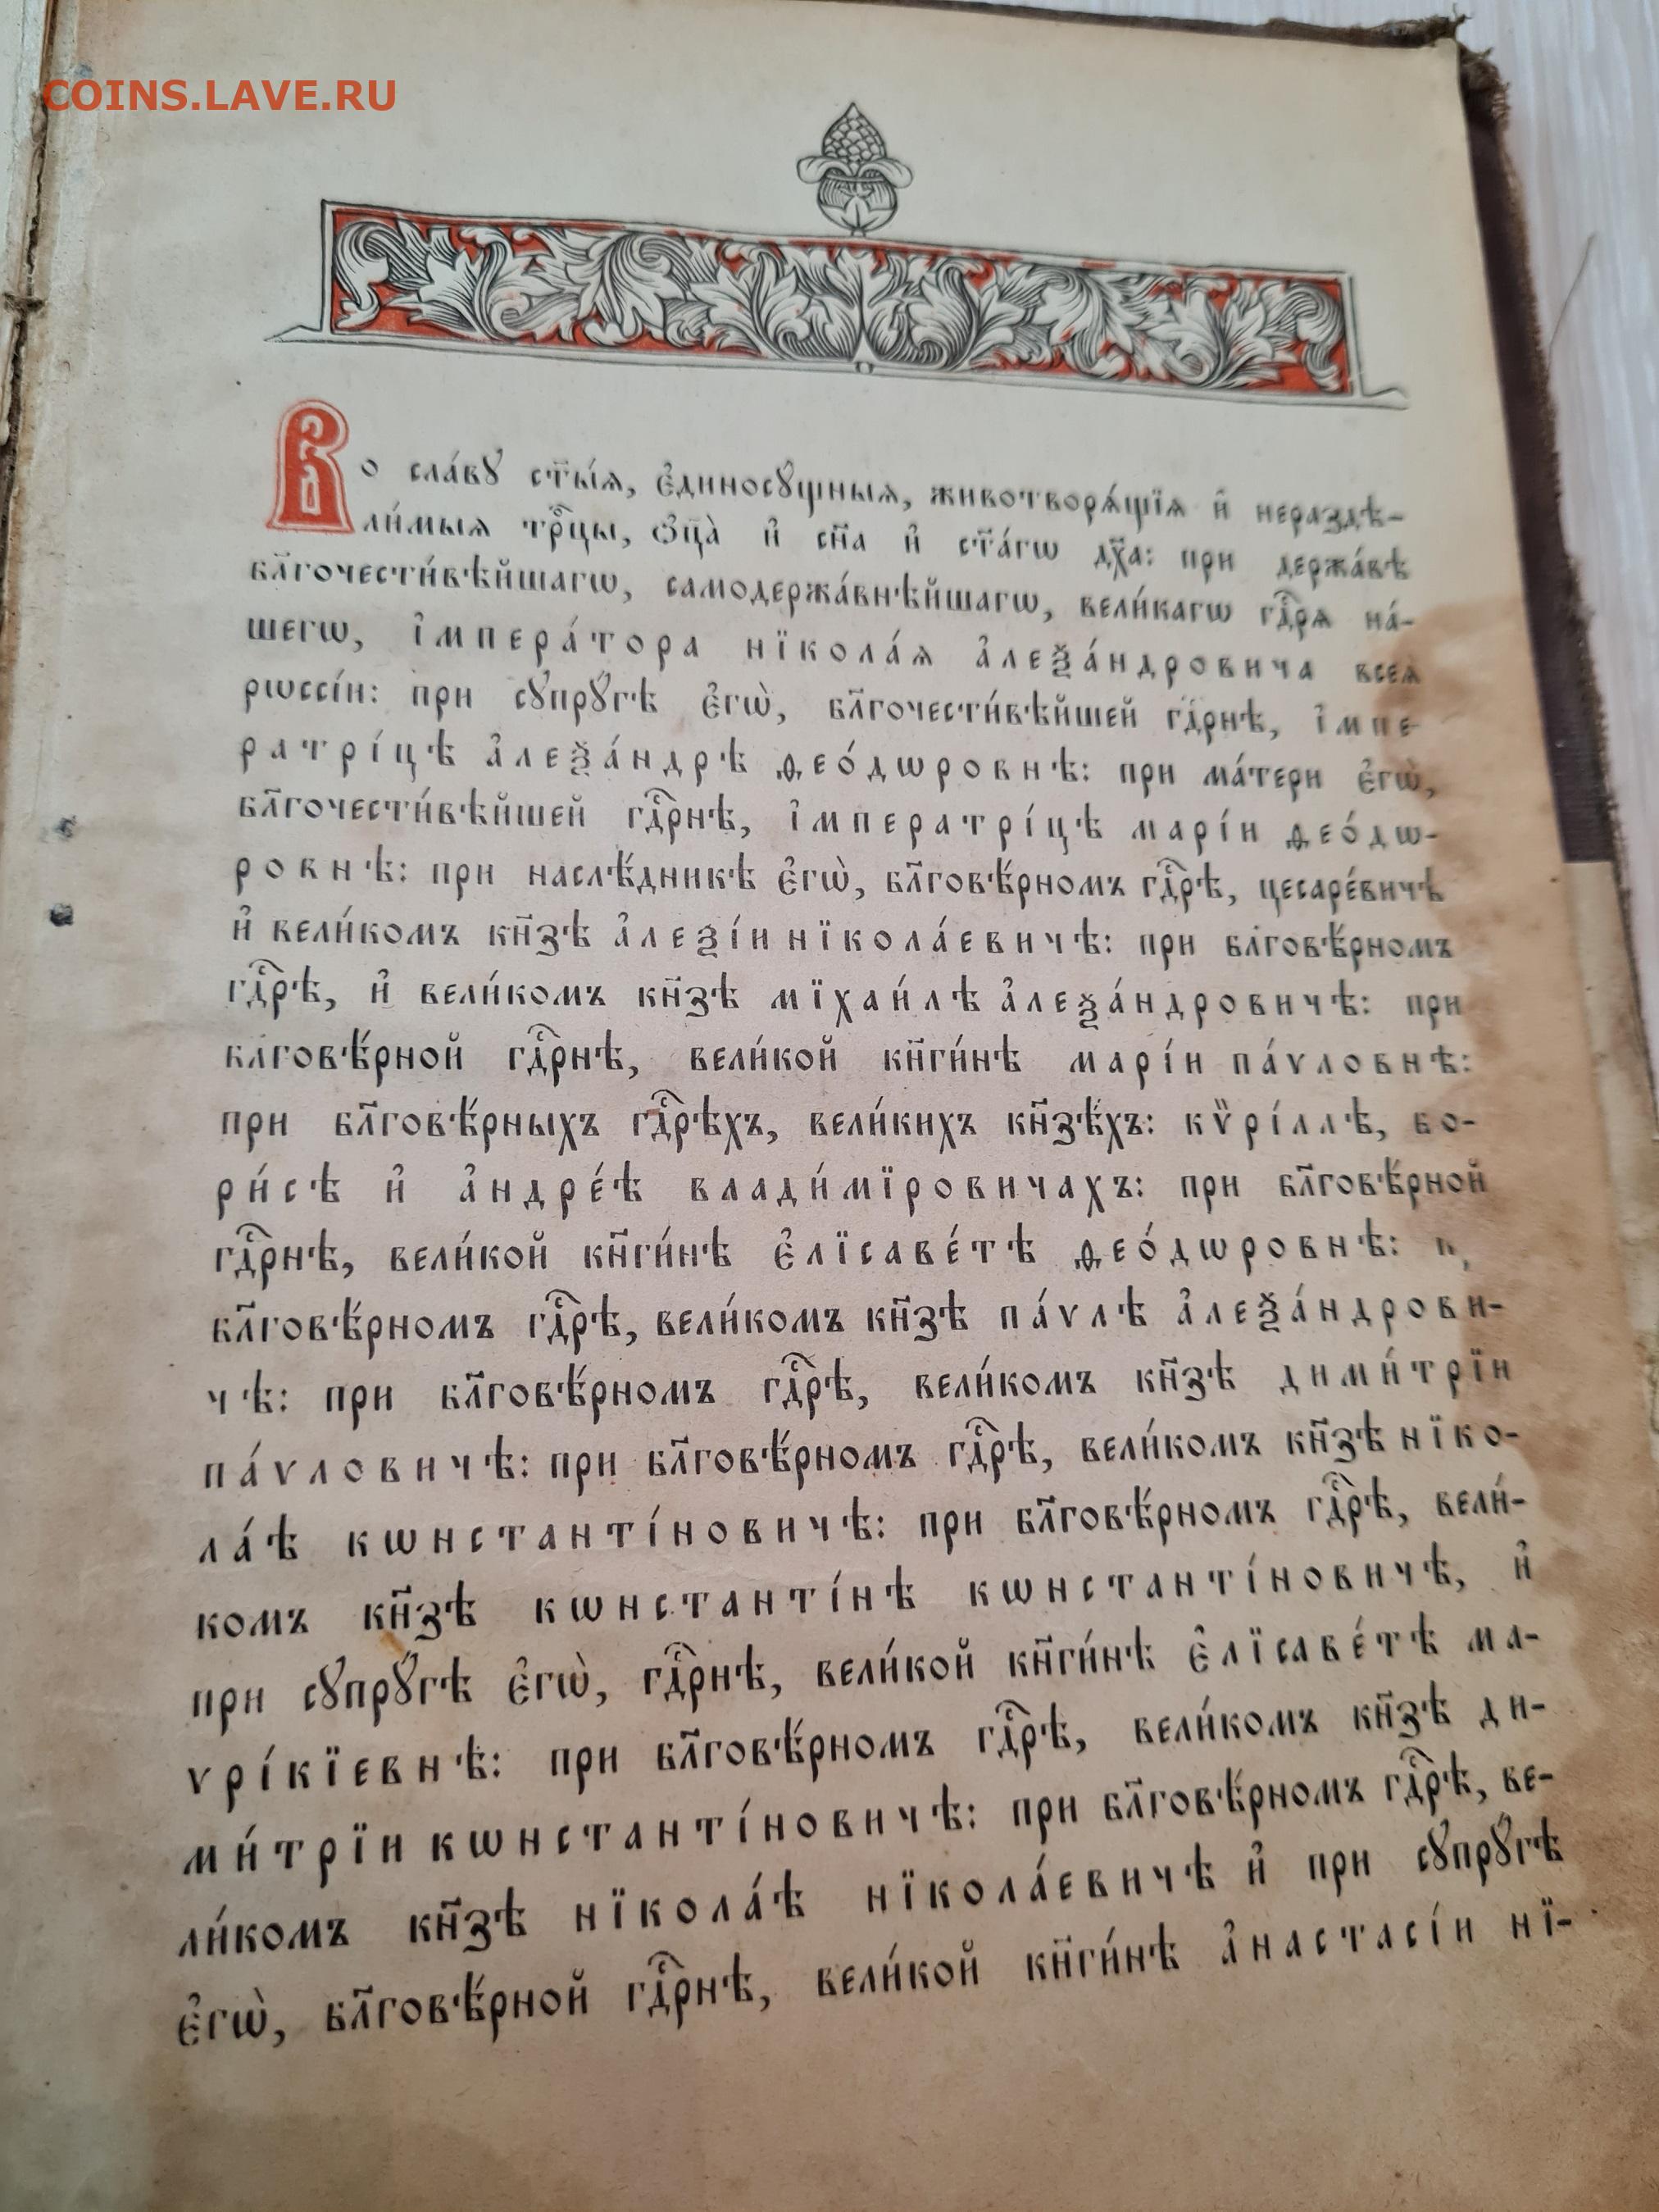 COINS.LAVE.RU
Во сла́вꙋ ст҃ы́ѧ, є҆диносꙋ́щныѧ, животворѧ́щїѧ и҆ нераздѣ-
ли́мыѧ трⷪ҇цы, ѻ҆ц҃а̀ и҆ сн҃а и҆ ст҃а́гѡ дх҃а: при держа́вѣ
бл҃гочести́вѣйшагѡ, самодержа́внѣйшагѡ, вели́кагѡ гдⷭ҇рѧ на́-
шегѡ, і҆мпера́тора нїкола́ѧ а҆леѯа́ндровича всеѧ̀
рѡссі́и: при сꙋпрꙋ́гѣ є҆гѡ̀, бл҃гочести́вѣйшей гдⷭ҇рнѣ, і҆мпе-
ратрі́цѣ а҆леѯа́ндрѣ ѳео́дѡровнѣ: при ма́тери є҆гѡ̀,
бл҃гочести́вѣйшей гдⷭ҇рнѣ, і҆мператрі́цѣ марі́и ѳео́дѡ-
ровнѣ: при наслѣ́дникѣ є҆гѡ̀, бл҃говѣ́рномъ гдⷭ҇рѣ, цесаре́вичѣ
и҆ вели́комъ кн҃зѣ а҆леѯі́и нїкола́евичѣ: при бл҃говѣ́рномъ
гдⷭ҇рѣ, и҆ вели́комъ кн҃зѣ мїхаи́лѣ а҆леѯа́ндровичѣ: при
бл҃говѣ́рной гдⷭ҇рнѣ, вели́кой кн҃ги́нѣ марі́и па́ѵловнѣ:
при бл҃говѣ́рныхъ гдⷭ҇рѣхъ, вели́кихъ кн҃зѣ́хъ: кѷрі́ллѣ, бо-
ри́сѣ и҆ а҆ндре́ѣ влади́мїровичахъ: при бл҃говѣ́рной
гдⷭ҇рнѣ, вели́кой кн҃ги́нѣ є҆лїсаве́тѣ ѳео́дѡровнѣ:
бл҃говѣ́рномъ гдⷭ҇рѣ, вели́комъ кн҃зѣ па́ѵлѣ а҆леѯа́ндрови-
чѣ: при бл҃говѣ́рномъ гдⷭ҇рѣ, вели́комъ кн҃зѣ дими́трїи
па́ѵловичѣ: при бл҃говѣ́рномъ гдⷭ҇рѣ, вели́комъ кн҃зѣ нїко-
ла́ѣ кѡнстанті́новичѣ: при бл҃говѣ́рномъ гдⷭ҇рѣ, вели́-
комъ кн҃зѣ кѡнстанті́нѣ кѡнстанті́новичѣ, и҆
при сꙋпрꙋ́гѣ є҆гѡ̀, гдⷭ҇рнѣ, вели́кой кн҃ги́нѣ є҆лїсаве́тѣ ма-
ѵрі́кїевнѣ: при бл҃говѣ́рномъ гдⷭ҇рѣ, вели́комъ кн҃зѣ ди-
ми́трїи кѡнстанті́новичѣ: при бл҃говѣ́рномъ гдⷭ҇рѣ, ве-
ли́комъ кн҃зѣ нїкола́ѣ нїкола́евичѣ и҆ при сꙋпрꙋ́гѣ
є҆гѡ̀, бл҃говѣ́рной гдⷭ҇рнѣ, вели́кой кн҃ги́нѣ а҆настасі́и нї-